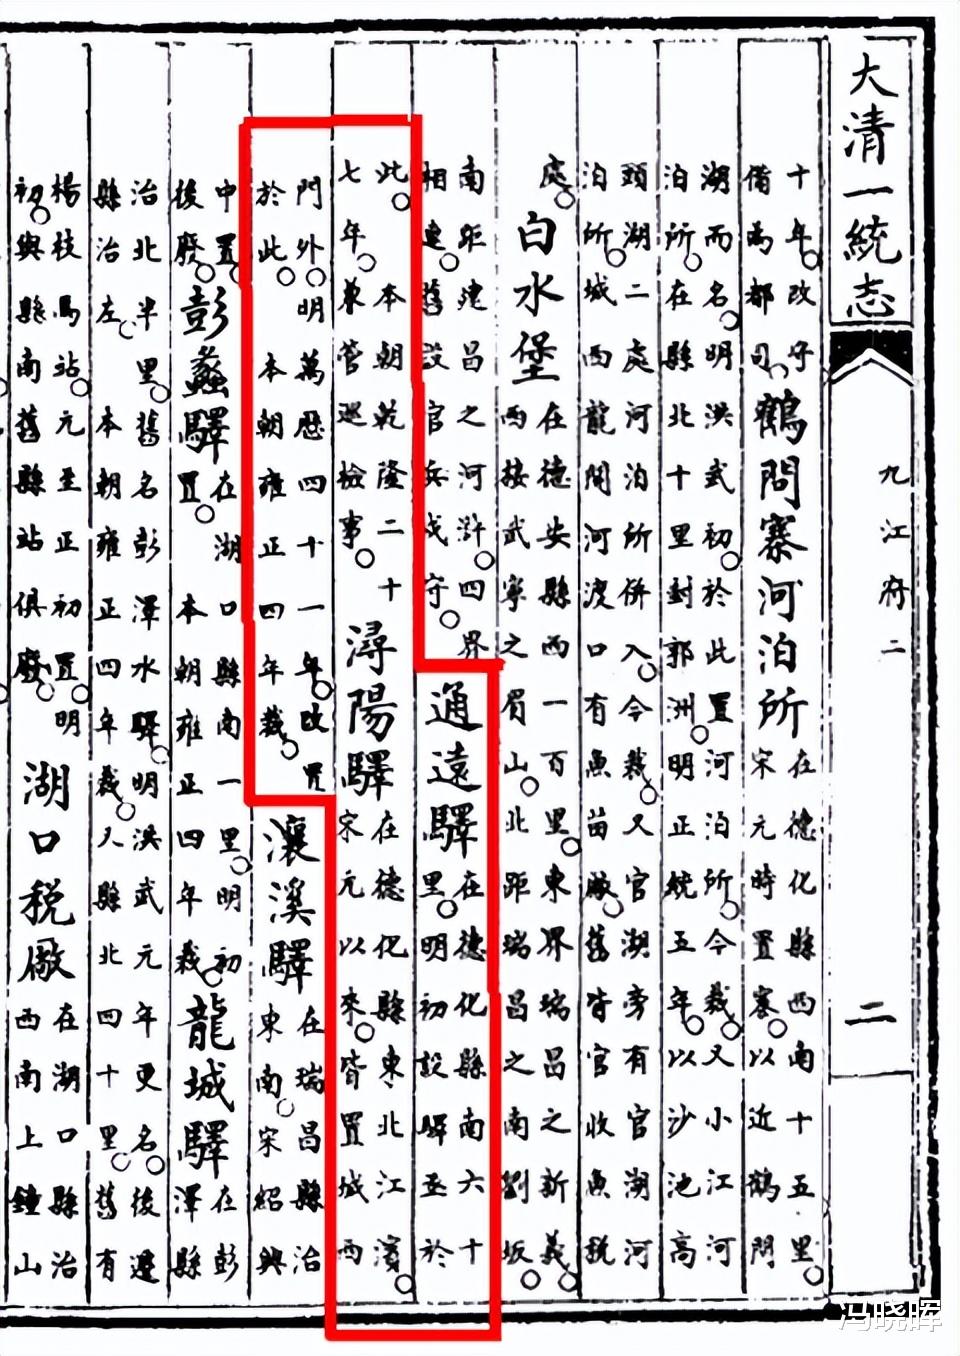 大清一統志 九江府二 二
十年改守
備爲都司
鶴問寨河泊所
在德化縣西南十五里
宋元時置寨以近鶴問
湖而名明洪武初於此置河泊所今裁又小江河
泊所在縣北十里封郭洲明正統五年以沙池高
頸湖二處河泊所併入今裁又官湖旁有官湖河
泊所城西龍開河渡口有魚苗廠舊皆官收魚稅
處
白水堡
在德安縣西一百里東界瑞昌之新義
西接武寧之眉山北距瑞昌之南劉坂
南距建昌之河滸四界
相連舊設官兵戍守
通遠驛
在德化縣南六十
里明初設驛丞於
此 本朝乾隆二十
七年兼管巡檢事
潯陽驛
在德化縣東北江濱
宋元以來皆置城西
門外明萬歷四十一年改置
於此 本朝雍正四年裁
瀼溪驛
在瑞昌縣治
東南宋紹興
中置
後廢
彭蠡驛
在湖口縣南一里明初
置 本朝雍正四年裁
龍城驛
在彭
澤縣
治北半里舊名彭澤水驛明洪武元年更名後遷
縣治左 本朝雍正四年裁又縣北四十里舊有
楊枝馬站元至正初置明
初與縣南舊縣站俱廢
湖口稅廠
在湖口縣治
西南上鐘山
冯晓晖